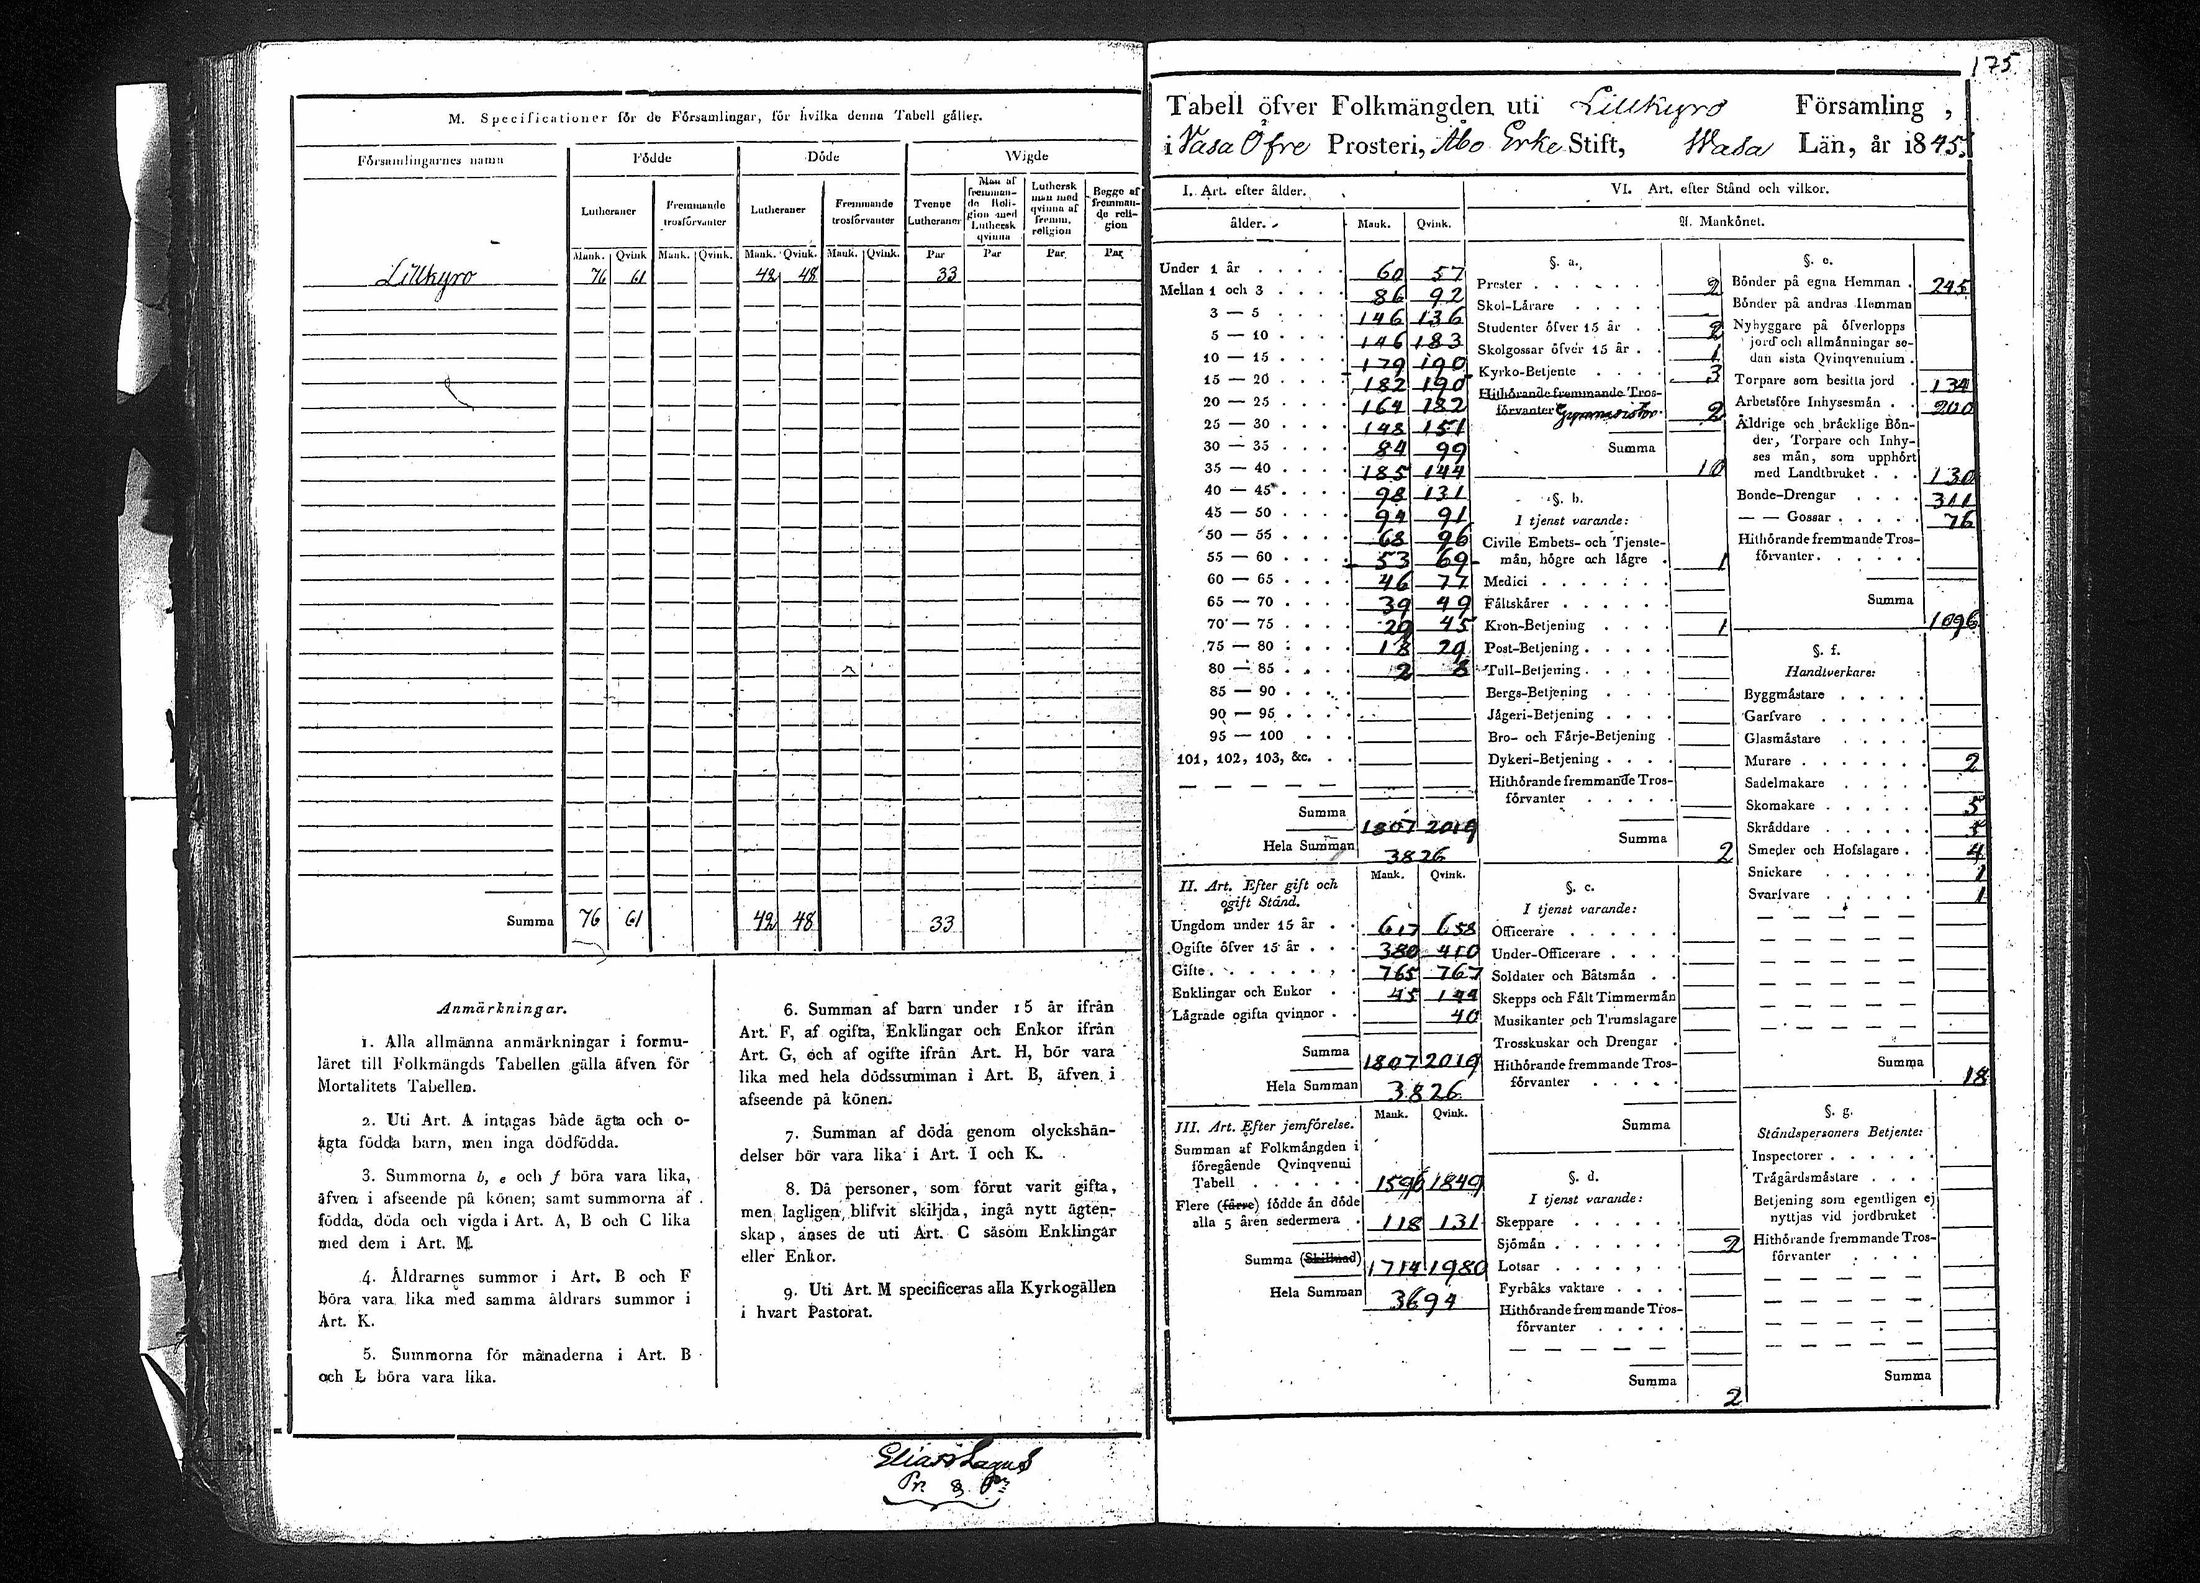 M. Specificationer för de Församlingar, för hvilka denna Tabell gäller.
Församlingarnes namn
Födde
Döde
Wigde
Lutheraner
Fremmande trosförvanter
Lutheraner
Fremmande trosförvanter
Tvenne Lutheraner
Man af fremmande Religion med Luthersk qvinna
Luthersk man med qvinna af fremm. religion
Begge af fremmande religion
Mank. Qvink. Mank. Qvink. Mank. Qvink. Mank. Qvink. Par Par Par Par
Lillkyro 76 61 42 48 33
Summa 76 61 42 48 33
Anmärkningar.
1. Alla allmänna anmärkningar i formu-
läret till Folkmängds Tabellen gälla äfven för
Mortalitets Tabellen.
2. Uti Art. A intagas både ägta och o-
ägta födda barn, men inga dödfödda.
3. Summorna b, e och f böra vara lika,
äfven i afseende på könen; samt summorna af
födda, döda och vigda i Art. A, B och C lika
med dem i Art. M.
4. Åldrarnes summor i Art. B och F
böra vara lika med samma åldrars summor i
Art. K.
5. Summorna för månaderna i Art. B
och L böra vara lika.
6. Summan af barn under 15 år ifrån
Art. F, af ogifta, Enklingar och Enkor ifrån
Art. G, och af ogifte ifrån Art. H, bör vara
lika med hela dödssumman i Art. B, äfven i
afseende på könen.
7. Summan af döda genom olyckshän-
delser bör vara lika i Art. I och K.
8. Då personer, som förut varit gifta,
men lagligen blifvit skiljda, ingå nytt ägten-
skap, anses de uti Art. C såsom Enklingar
eller Enkor.
9. Uti Art. M specificeras alla Kyrkogällen
i hvart Pastorat.
Elias Lagus
175
Tabell öfver Folkmängden uti Lillkyro Församling,
i Vasa Öfre Prosteri, Åbo Erke Stift, Wasa Län, år 1845.
I. Art. efter ålder.
ålder. Mank. Qvink.
Under 1 år 60 57
Mellan 1 och 3 86 92
3 — 5 146 136
5 — 10 146 183
10 — 15 179 190
15 — 20 182 190
20 — 25 164 182
25 — 30 148 151
30 — 35 84 99
35 — 40 185 144
40 — 45 98 131
45 — 50 94 91
50 — 55 68 96
55 — 60 53 69
60 — 65 46 77
65 — 70 39 49
70 — 75 29 45
75 — 80 18 29
80 — 85 2 8
85 — 90
90 — 95
95 — 100
101, 102, 103, &c.
Summa 1807 2019
Hela Summan 3826
II. Art. Efter gift och
ogift Stånd.
Mank. Qvink.
Ungdom under 15 år 617 658
Ogifte öfver 15 år 380 410
Gifte 765 767
Enklingar och Enkor 45 144
Lägrade ogifta qvinnor 40
Summa 1807 2019
Hela Summan 3826
III. Art. Efter jemförelse.
Mank. Qvink.
Summan af Folkmängden i
föregående Qvinqvennii
Tabell 1596 1849
Flere (färre) födde än döde
alla 5 åren sedermera 118 131
Summa (Skillnad) 1714 1980
Hela Summan 3694
VI. Art. efter Stånd och vilkor.
A. Mankönet.
§. a.
Prester 2
Skol-Lärare
Studenter öfver 15 år 2
Skolgossar öfver 15 år 1
Kyrko-Betjente 3
Hithörande fremmande Tros-
förvanter Gymnasister 2
Summa 10
§. b.
I tjenst varande:
Civile Embets- och Tjenste-
män, högre och lägre 1
Medici
Fältskärer
Kron-Betjening 1
Post-Betjening
Tull-Betjening
Bergs-Betjening
Jägeri-Betjening
Bro- och Färje-Betjening
Dykeri-Betjening
Hithörande fremmande Tros-
förvanter
Summa 2
§. c.
I tjenst varande:
Officerare
Under-Officerare
Soldater och Båtsmän
Skepps och Fält Timmermän
Musikanter och Trumslagare
Trosskuskar och Drengar
Hithörande fremmande Tros-
förvanter
Summa
§. d.
I tjenst varande:
Skeppare
Sjömän 2
Lotsar
Fyrbåks vaktare
Hithörande fremmande Tros-
förvanter
Summa 2
§. e.
Bönder på egna Hemman 245
Bönder på andras Hemman
Nybyggare på öfverlopps
jord och allmänningar se-
dan sista Qvinqvennium
Torpare som besitta jord 134
Arbetsföre Inhysesmän 200
Åldrige och bräcklige Bön-
der, Torpare och Inhy-
ses män, som upphört
med Landtbruket 130
Bonde-Drengar 311
— — Gossar 76
Hithörande fremmande Tros-
förvanter
Summa 1096
§. f.
Handtverkare:
Byggmästare
Garfvare
Glasmästare
Murare 2
Sadelmakare
Skomakare 5
Skräddare 5
Smeder och Hofslagare 4
Snickare 1
Svarfvare 1
Summa 18
§. g.
Ståndspersoners Betjente:
Inspectorer
Trägårdsmästare
Betjening som egentligen ej
nyttjas vid jordbruket
Hithörande fremmande Tros-
förvanter
Summa